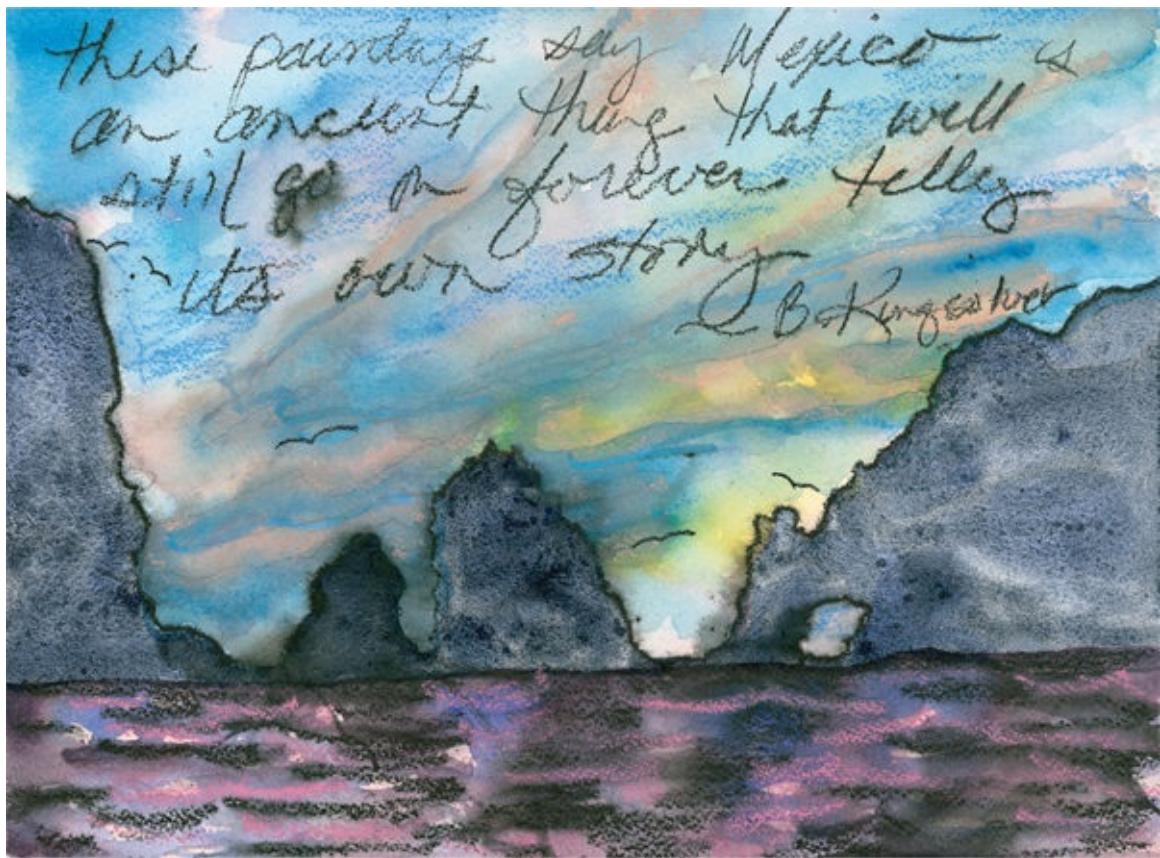 these paintings say Mexico is
an ancient thing that will
still go on forever telling
its own story
B. Kingsolver